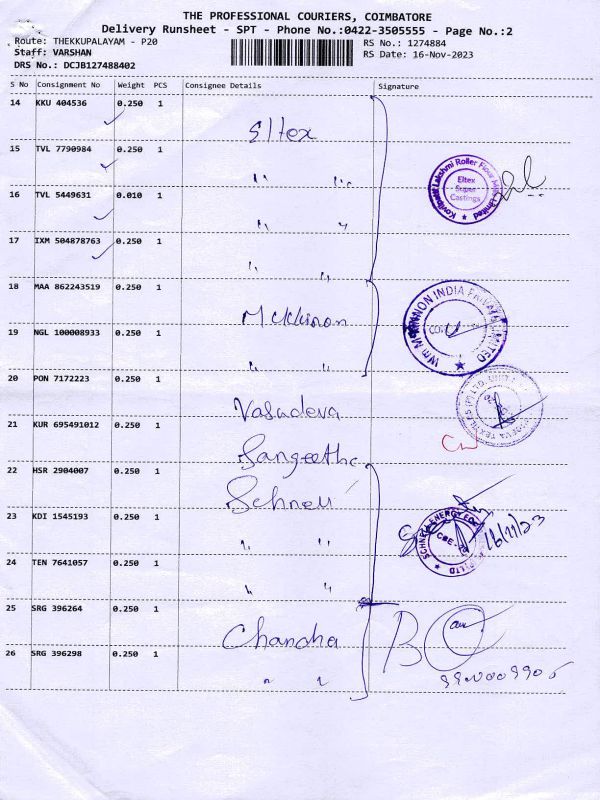 THE PROFESSIONAL COURIERS, COIMBATORE
Delivery Runsheet - SPT - Phone No.:0422-3505555 - Page No.:2
Route: THEKKUPALAYAM - P20 RS No.: 1274884
Staff: VARSHAN RS Date: 16-Nov-2023
DRS No.: DCJB127488402
S No Consignment No Weight PCS Consignee Details Signature
14 KKU 404536 0.250 1 Eltex
15 TVL 7790984 0.250 1 " "
Kovilpatti Lakshmi Roller Flour Mills Limited
Eltex
Super
Castings
16 TVL 5449631 0.010 1 " "
17 IXM 504878763 0.250 1 " "
18 MAA 862243519 0.250 1 Mckkinon
Wm MCKINNON INDIA PRIVATE LIMITED
19 NGL 100008933 0.250 1 " "
20 PON 7172223 0.250 1 Vasudeva
21 KUR 695491012 0.250 1 Sangeetha
22 HSR 2904007 0.250 1 Schnell
23 KDI 1545193 0.250 1 " "
SCHNELL ENERGY
CBE
16/11/23
24 TEN 7641057 0.250 1 " "
25 SRG 396264 0.250 1 Chandha
26 SRG 396298 0.250 1 " "